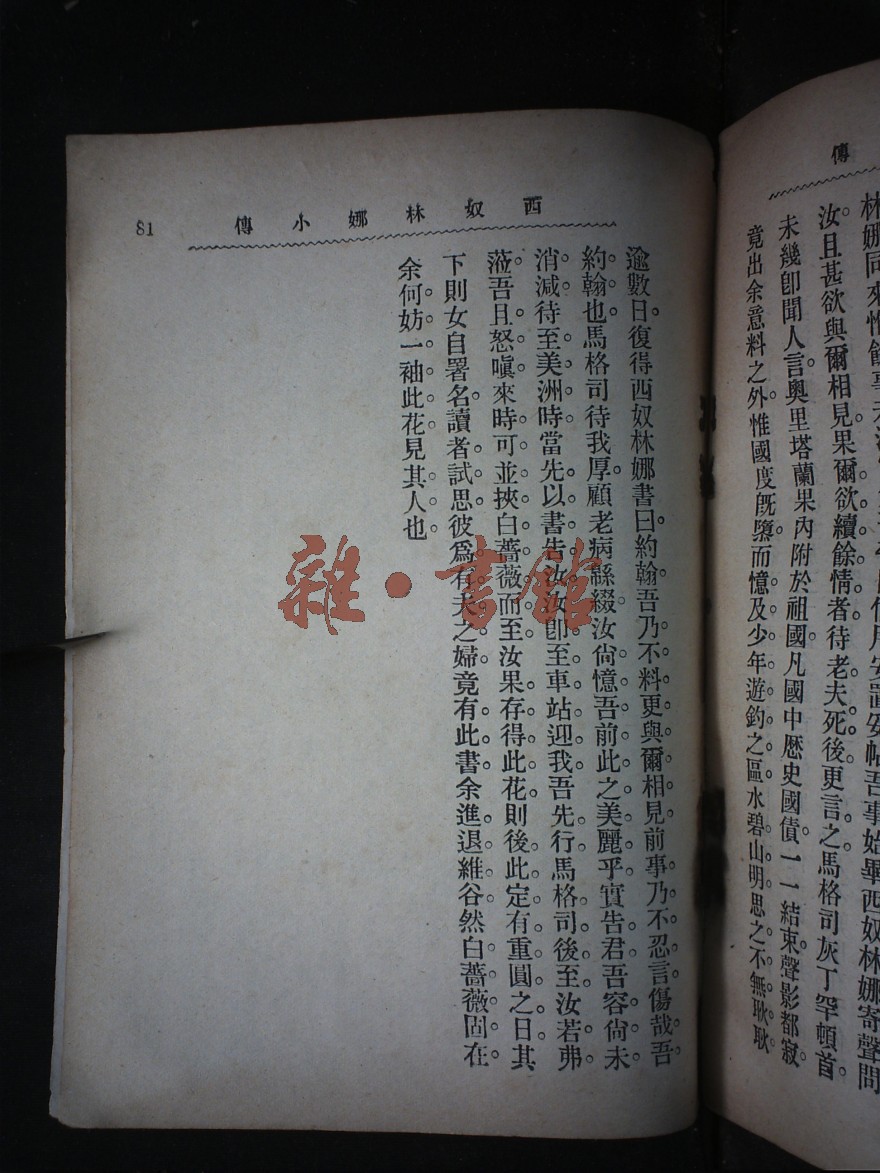 傳
林娜同來惟餘事未
安置安帖吾事始畢西奴林娜寄聲問
汝。且甚欲與爾相見。果爾欲續餘情者。待老夫死後更言之。馬格司灰丁罕頓首。
未幾卽聞人言。奧里塔蘭果內附於祖國。凡國中歷史國債。一一結束。聲影都寂。
竟出余意料之外。惟國度旣隳。而憶及少年遊釣之區。水碧山明。思之不無耿耿
西奴林娜小傳
81
逾數日。復得西奴林娜書曰。約翰。吾乃不料更與爾相見。前事乃不忍言。傷哉吾
約翰也。馬格司待我厚。顧老病緜綴。汝尙憶吾前此之美麗乎。實告君。吾容尙未
消減。待至美洲時。當先以書告汝。汝卽至車站迎我。吾先行。馬格司後至。汝若弗
蒞。吾且怒嗔。來時可並挾白薔薇而至。汝果存得此花。則後此定有重圓之日。其
下則女自署名。讀者試思彼爲有夫之婦。竟有此書。余進退維谷。然白薔薇固在
余何妨一袖此花。見其人也
雜·書館